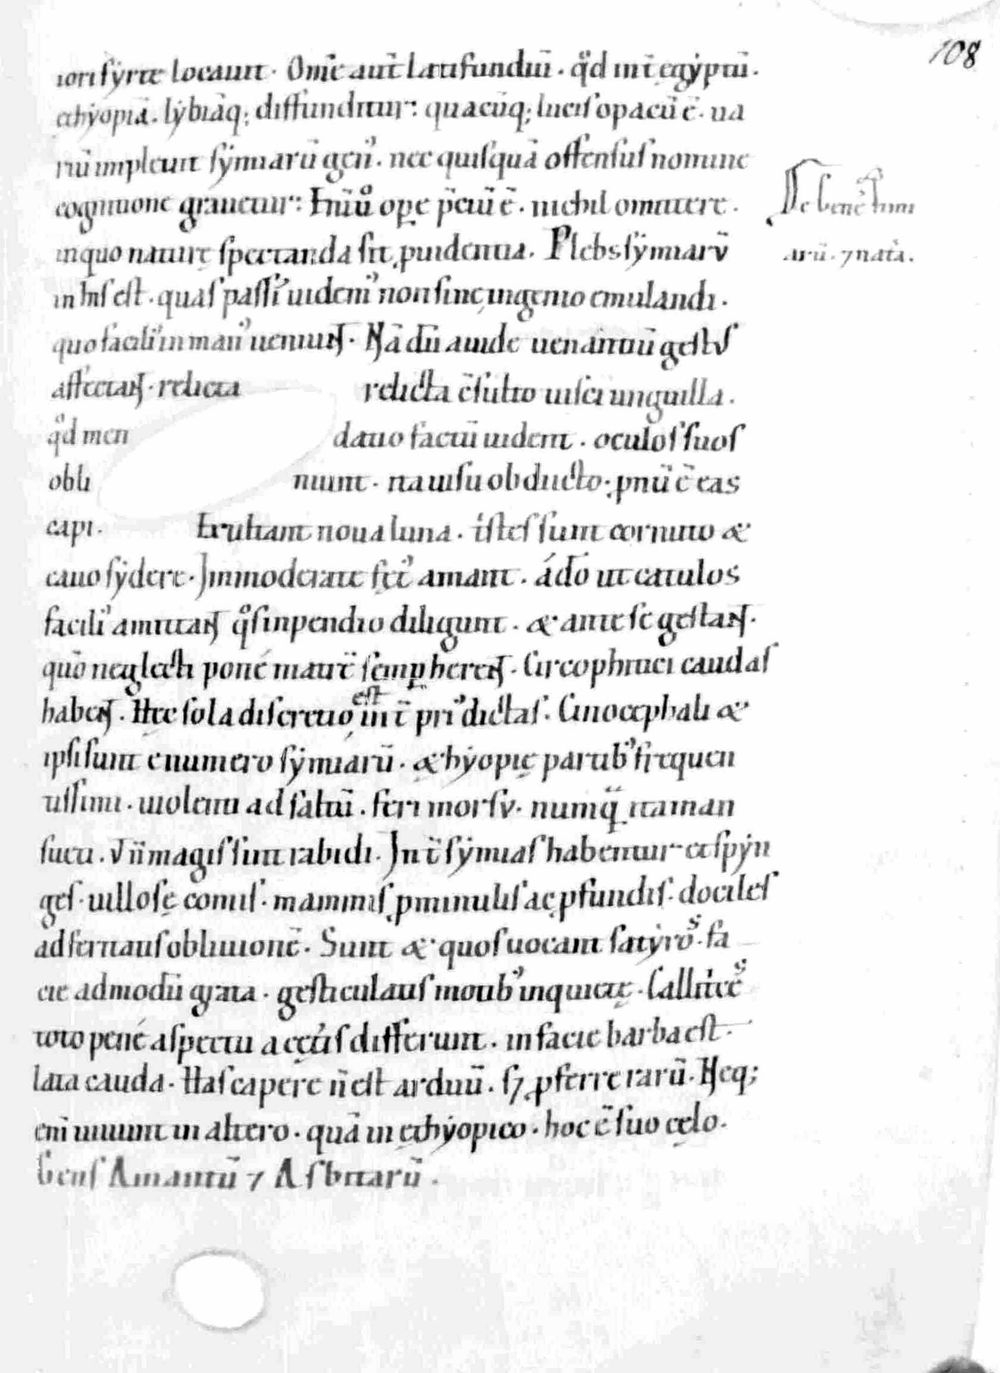 108
iori syrte locauit. Om̄e aut̄ latifundiū. q̊d int̄ egyptū.
ęthyopiā. lybiāq; diffunditur: quacūq; lucis opacū ē. ua
riū impleuit symiarū gen᾽. nec quisquā offensus nomine
cognitione grauetur: Enīuo opę p̄ciū ē. nichil omittere.
inquo naturę spectanda sit ꝓuidentia. Plebs symiarū
in his est. quas passī uidem᾽ non sine ingenio emulandi.
quo facili᾽ in man᾽ ueniunt. Nā dū auide uenantiū gestus
affectant. relicta relicta c̄sulto uisci unguilla.
q̊d men dacio factū uident. oculos suos
obli niunt. ita uisu obducto. pnū ē eas
capi. Exultant noua luna. t̄stes sunt cornuto &
cauo sydere. Immoderate fęt᾽ amant. ádō ut catulos
facili᾽ amittant q̊s inpendio diligunt. & ante se gestant.
quō neglecti ponē matr̄ semp herent. Circopitheci caudas
habent. Hęc sola discretio est int̄ pri᾽ dictas. Cinocephali &
ipsi sunt e numero symiarū. ęthyopię partib᾽ frequen
tissimi. uiolenti ad saltū. feri morsu. numq̄ ita man
sueti. ut ñ magis sint rabidi. Int̄ symias habentur et spyn
ges. uillose comis. mammis ꝓminulis ac ꝓfundis. dociles
ad feritatis obliuionē. Sunt & quos uocant satyros. fa
cie admodū grata. gesticulatis motib᾽ inquietę. Callitrices
toto penē aspectu a cęt̄is differunt. in facie barba est.
lata cauda. Has capere ñ est arduū. s; ꝓferre rarū. Neq;
enī uiuunt in altero. quā in ęthyopico. hoc ē suo cęlo.
Gens Amantū ⁊ Asbitarū.
De gene simi
arū. ⁊ natā.